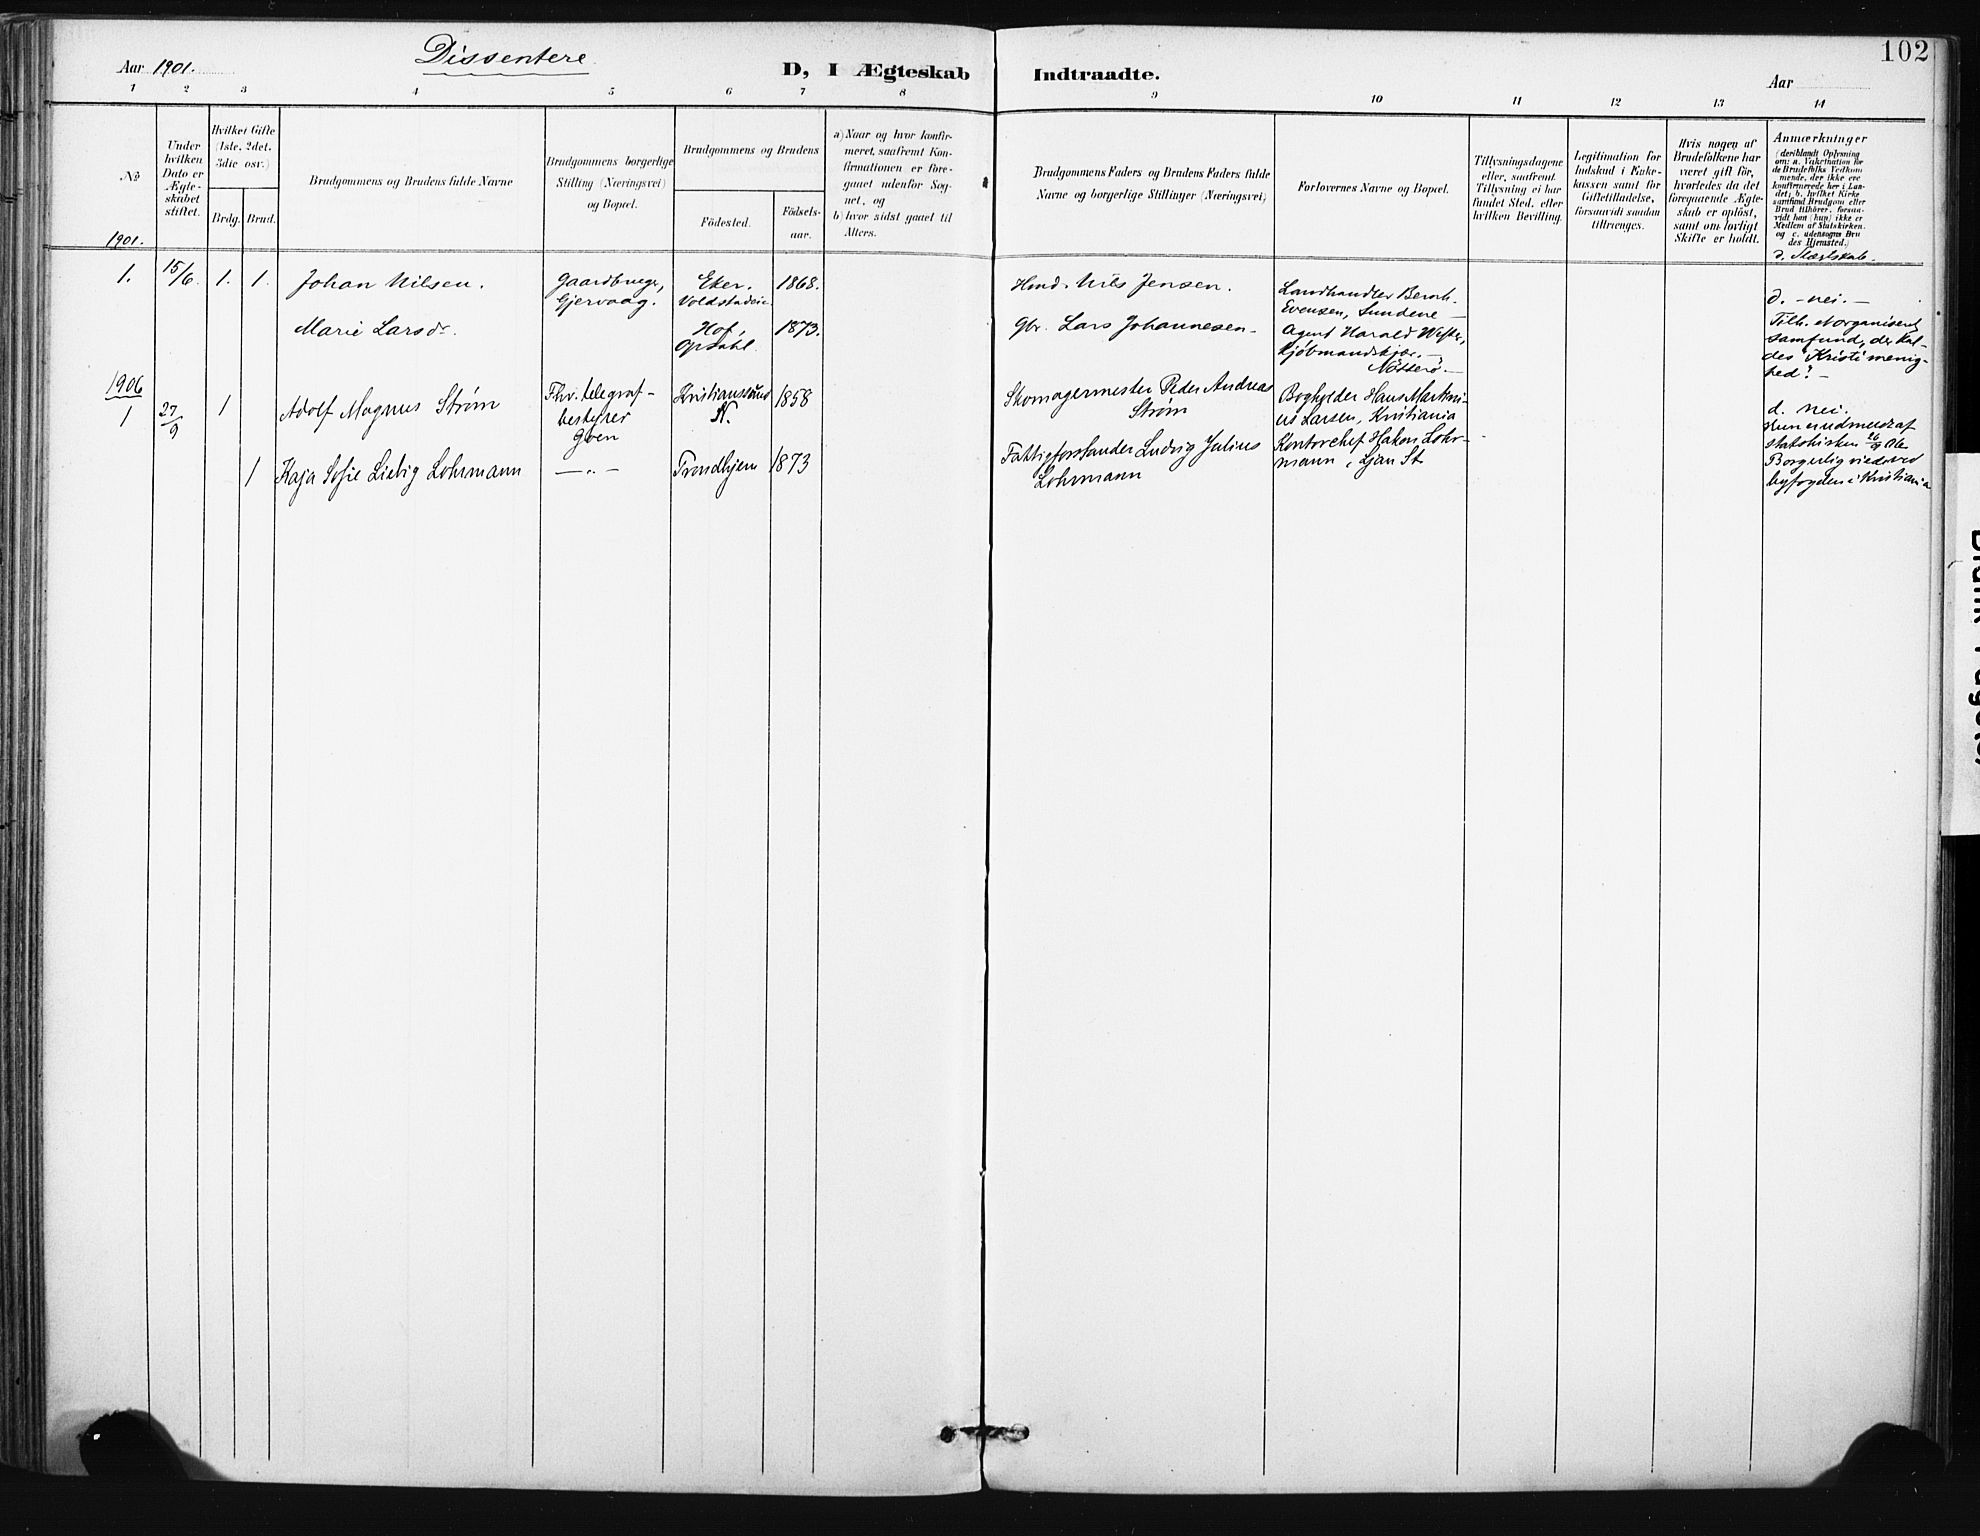 Dissentere
102
Aar 1901.
D, I Ægteskab Indtraadte.
Aar
1 2 3 4 5 6 7 8 9 10 11 12 13 14
No
1901.
Under
hvilken
Dato er
Ægte-
skabet
stiftet.
Hvilket Gifte
(1ste, 2det,
3die osv.)
Brdg.
Brud.
Brudgommens og Brudens fulde Navne
Brudgommens borgerlige
Stilling (Næringsvei)
og Bopæl.
Brudgommens og Brudens
Födested.
Födsels-
aar.
a) Naar og hvor konfir-
meret, saafremt Kon-
firmationen er fore-
gaaet udenfor Sog-
net, og
b) hvor sidst gaaet til
Alters.
Brudgommens Faders og Brudens Faders fulde
Navne og borgerlige Stillinger (Næringsvei)
Forlovernes Navne og Bopæl.
Tillysningsdagene
eller, saafremt
Tillysning ei har
fundet Sted, efter
hvilken Bevilling.
Legitimation for
Indskud i Enke-
kassen samt for
Giftetilladelse,
forsaavidt saadan
tiltrænges.
Hvis nogen af
Brudefolkene har
været gift før,
hvorledes da det
foregaaende Ægte-
skab er opløst,
samt om lovligt
Skifte er holdt.
Anmærkninger
(deriblandt Oplysning
om: a. Vakcination for
de Brudefolks Vedkom-
mende, der ikke ere
konfirmerede her i Lan-
det; b. hvilket Kirke-
samfund Brudgom eller
Brud tilhører, forsaa-
vidt han (hun) ikke er
Medlem af Statskirken,
og c. udensogns Bru-
des Hjemsted.)
d. Slægtskab.
1. 15/6. 1. 1. Johan Nilsen.
Gaardbruger,
Gjervaag.
Eker.
1868.
Nils Jensen.
Landhandler Bernh.
Evensen, Sundene –
d. – nei. –
Marie Larsdr.
Hof,
Opdahl.
1873.
Gbr. Lars Johannesen –
Agent Harald
Kjøbmandskjær. –
Nötterö. –
samfund, der kal-
des "Kristi menig-
hed". –
1906
1 27/9 1 Adolf Magnus Strøm
Fhv. telegraf-
bestyrer
Kristianssund
N.
1858
Skomagermester Peder Andreas
Strøm
Bogholder Hans Martini-
us Larsen, Kristiania
d. nei.
Hun er udmeldt af
statskirken 26/9 06
1 Kaja Sofie Liebig Lohrmann
– " –
Trondhjem
1873
Fattigforstander Ludvig Julius
Lohrmann
Kontorchef Hakon Lohr-
mann, Ljan St.
Borgerlig viede ved
byfogden i Kristiania